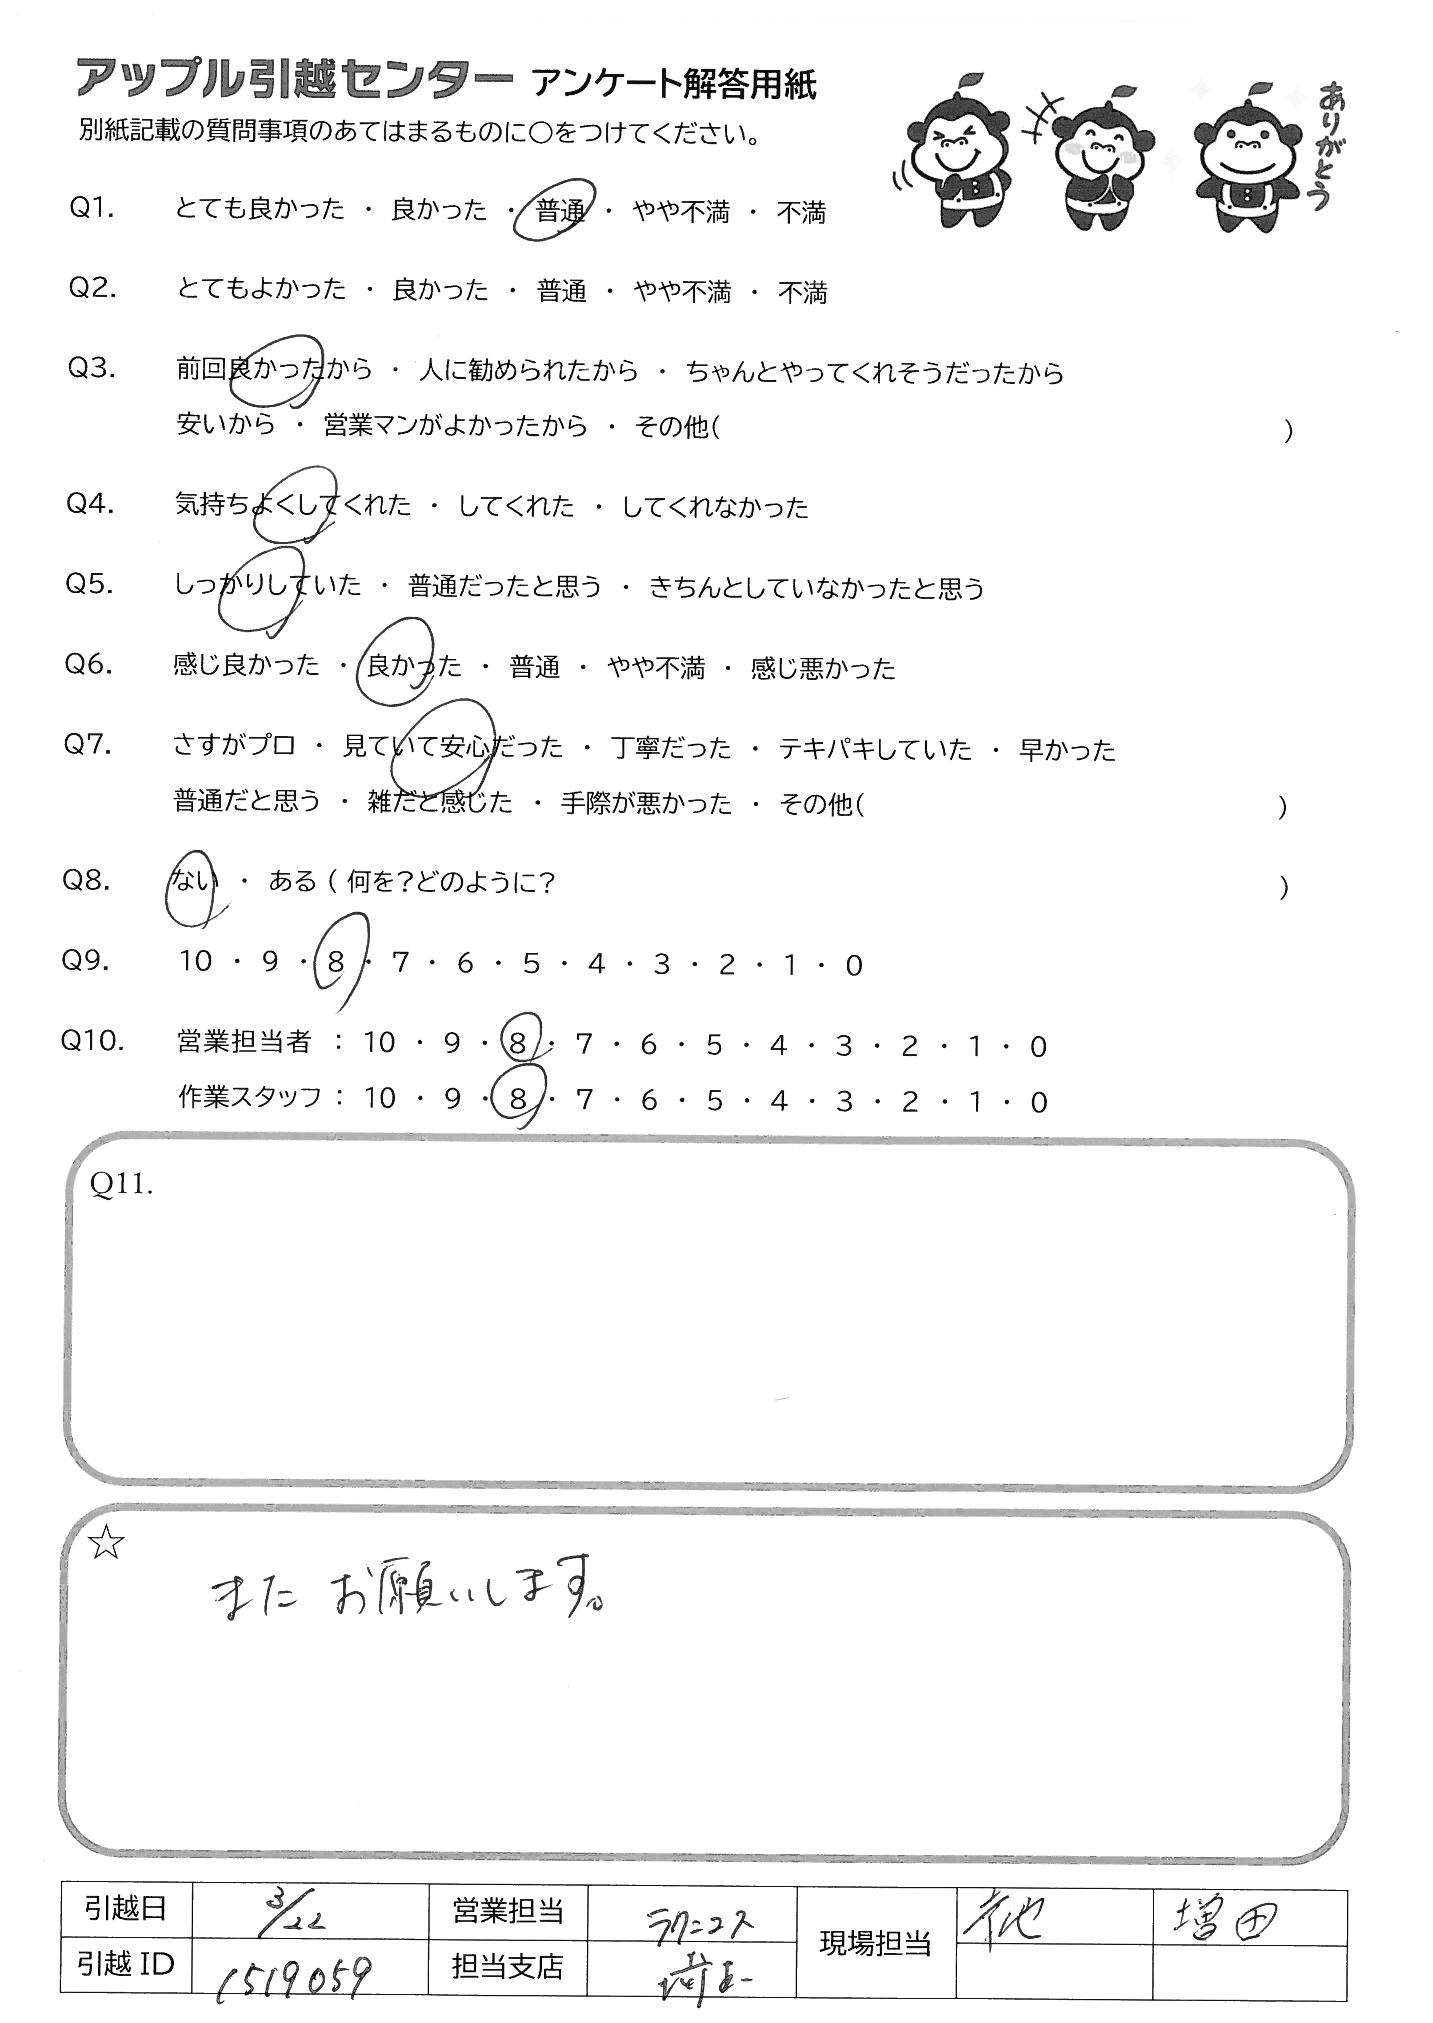 アップル引越センター アンケート解答用紙
ありがとう
別紙記載の質問事項のあてはまるものに○をつけてください。
Q1. とても良かった ・ 良かった ・ 普通 ・ やや不満 ・ 不満
Q2. とてもよかった ・ 良かった ・ 普通 ・ やや不満 ・ 不満
Q3. 前回良かったから ・ 人に勧められたから ・ ちゃんとやってくれそうだったから
安いから ・ 営業マンがよかったから ・ その他( )
Q4. 気持ちよくしてくれた ・ してくれた ・ してくれなかった
Q5. しっかりしていた ・ 普通だったと思う ・ きちんとしていなかったと思う
Q6. 感じ良かった ・ 良かった ・ 普通 ・ やや不満 ・ 感じ悪かった
Q7. さすがプロ ・ 見ていて安心だった ・ 丁寧だった ・ テキパキしていた ・ 早かった
普通だと思う ・ 雑だと感じた ・ 手際が悪かった ・ その他( )
Q8. ない ・ ある ( 何を?どのように? )
Q9. 10 ・ 9 ・ 8 ・ 7 ・ 6 ・ 5 ・ 4 ・ 3 ・ 2 ・ 1 ・ 0
Q10. 営業担当者 : 10 ・ 9 ・ 8 ・ 7 ・ 6 ・ 5 ・ 4 ・ 3 ・ 2 ・ 1 ・ 0
作業スタッフ : 10 ・ 9 ・ 8 ・ 7 ・ 6 ・ 5 ・ 4 ・ 3 ・ 2 ・ 1 ・ 0
Q11.
☆
また お願いします。
引越日 3/22 営業担当 現場担当 増田
引越 ID 1519059 担当支店 埼玉